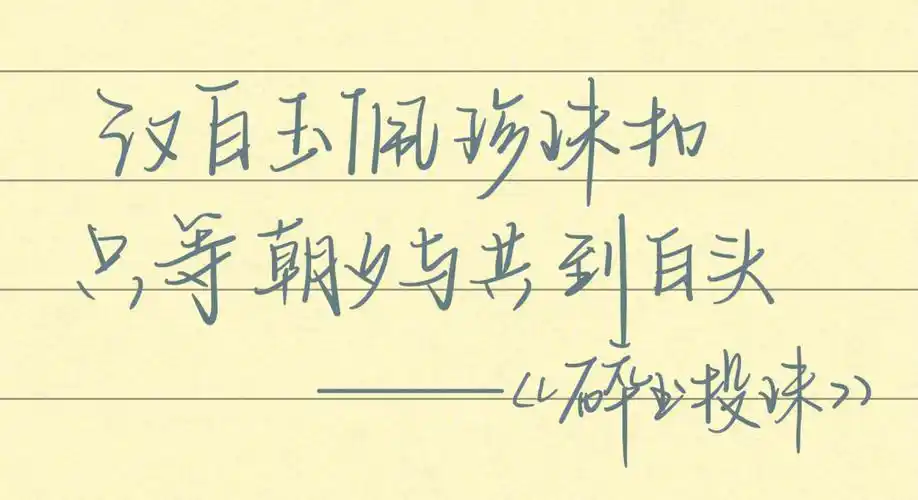 汉白玉佩珍珠扣
只等朝夕与共到白头
——《碎玉投珠》